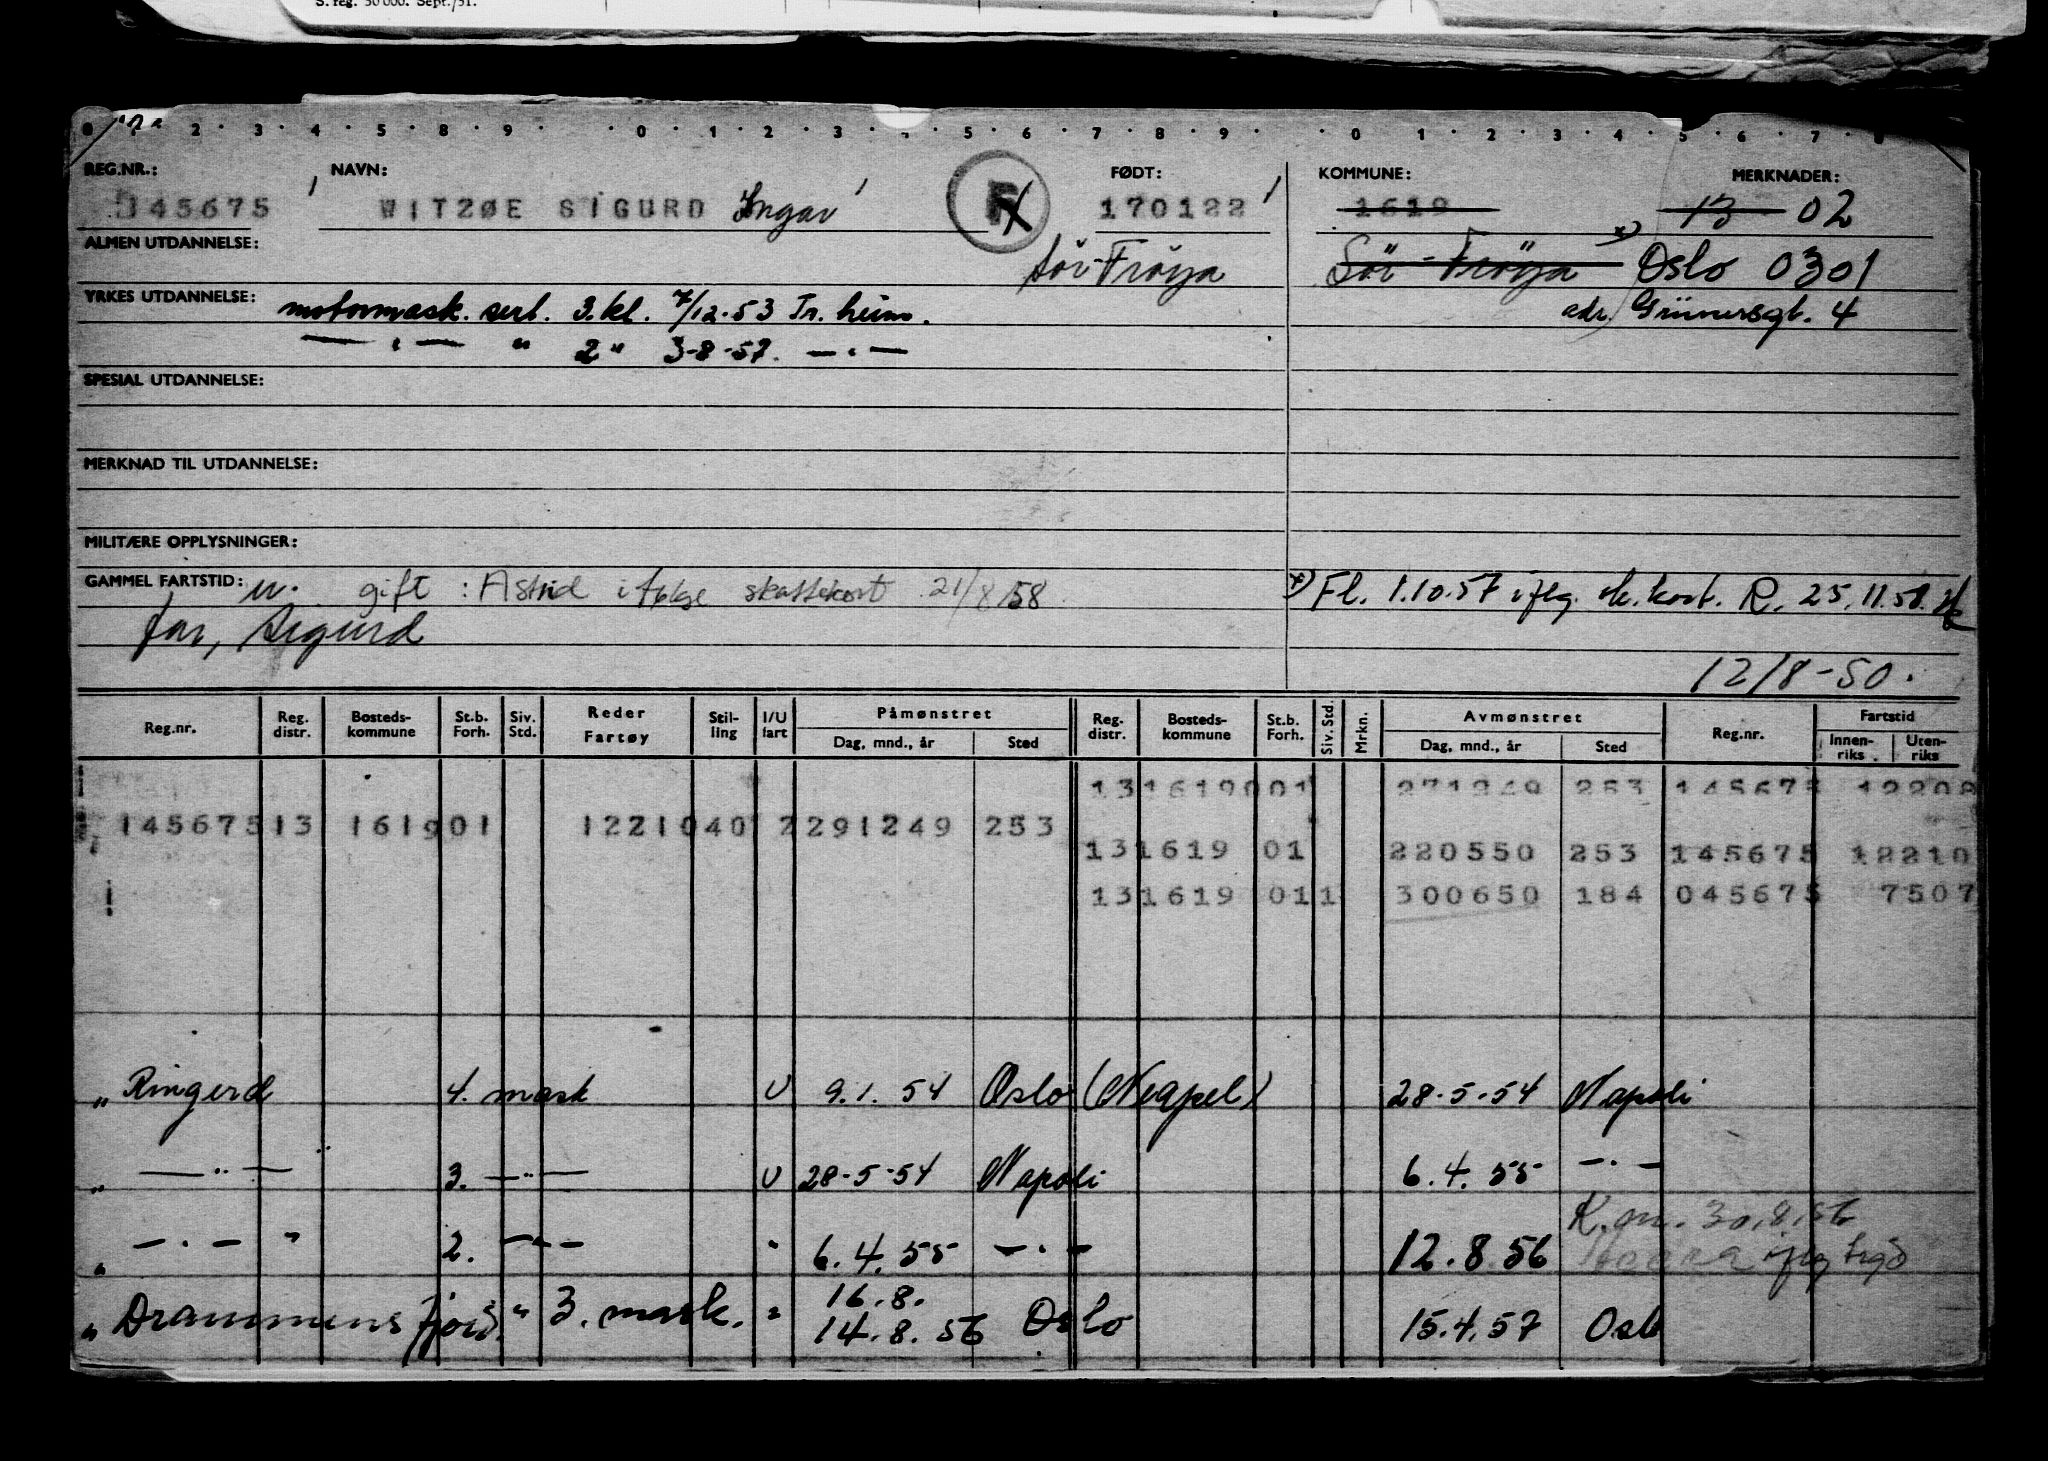 S. reg. 50 000. Sept./51.
REG.NR.: NAVN: FØDT: KOMMUNE: MERKNADER:
145675 WITZØE SIGURD Ingar F 170122 1619 13 02
ALMEN UTDANNELSE: Sör-Fröya Sör-Fröya x) Oslo 0301
YRKES UTDANNELSE: motormask. sert. 3. kl. 7/12-53 Tr.heim. adr. Grünersgt. 4
— " — " 2 " 3-8-57. — " —
SPESIAL UTDANNELSE:
MERKNAD TIL UTDANNELSE:
MILITÆRE OPPLYSNINGER:
GAMMEL FARTSTID: u. gift : Astrid ifølge skattekort 21/8 58 x) Fl. 1.10.57 iflg. sk.kort. R. 25.11.58.
far, Sigurd
12/8-50.
Reg.nr. Reg. distr. Bosteds-kommune St.b. Forh. Siv. Std. Reder Fartøy Stil-ling I/U fart Påmønstret Dag, mnd., år Sted Reg. distr. Bosteds-kommune St.b. Forh. Siv. Std. Mrkn. Avmønstret Dag, mnd., år Sted Reg.nr. Fartstid Innen-riks Uten-riks
13 1619 001 271249 253 145675 12208
145675 13 1619 01 12210 40 2 291249 253
13 1619 01 220550 253 145675 12210
13 1619 01 1 300650 184 045675 7507
" Ringerd 4. mask U 9.1.54 Oslo (Neapel) 28-5-54 Napoli
" — " — 3. — " — U 28-5-54 Napoli 6.4.55 — " —
" — " — " 2. — " — " 6.4.55 — " — 12.8.56 K.m. 30.8.56 iflg
" Drammensfjord. " 3. mask. " 16.8. 14.8.56 Oslo 15.4.57 Oslo